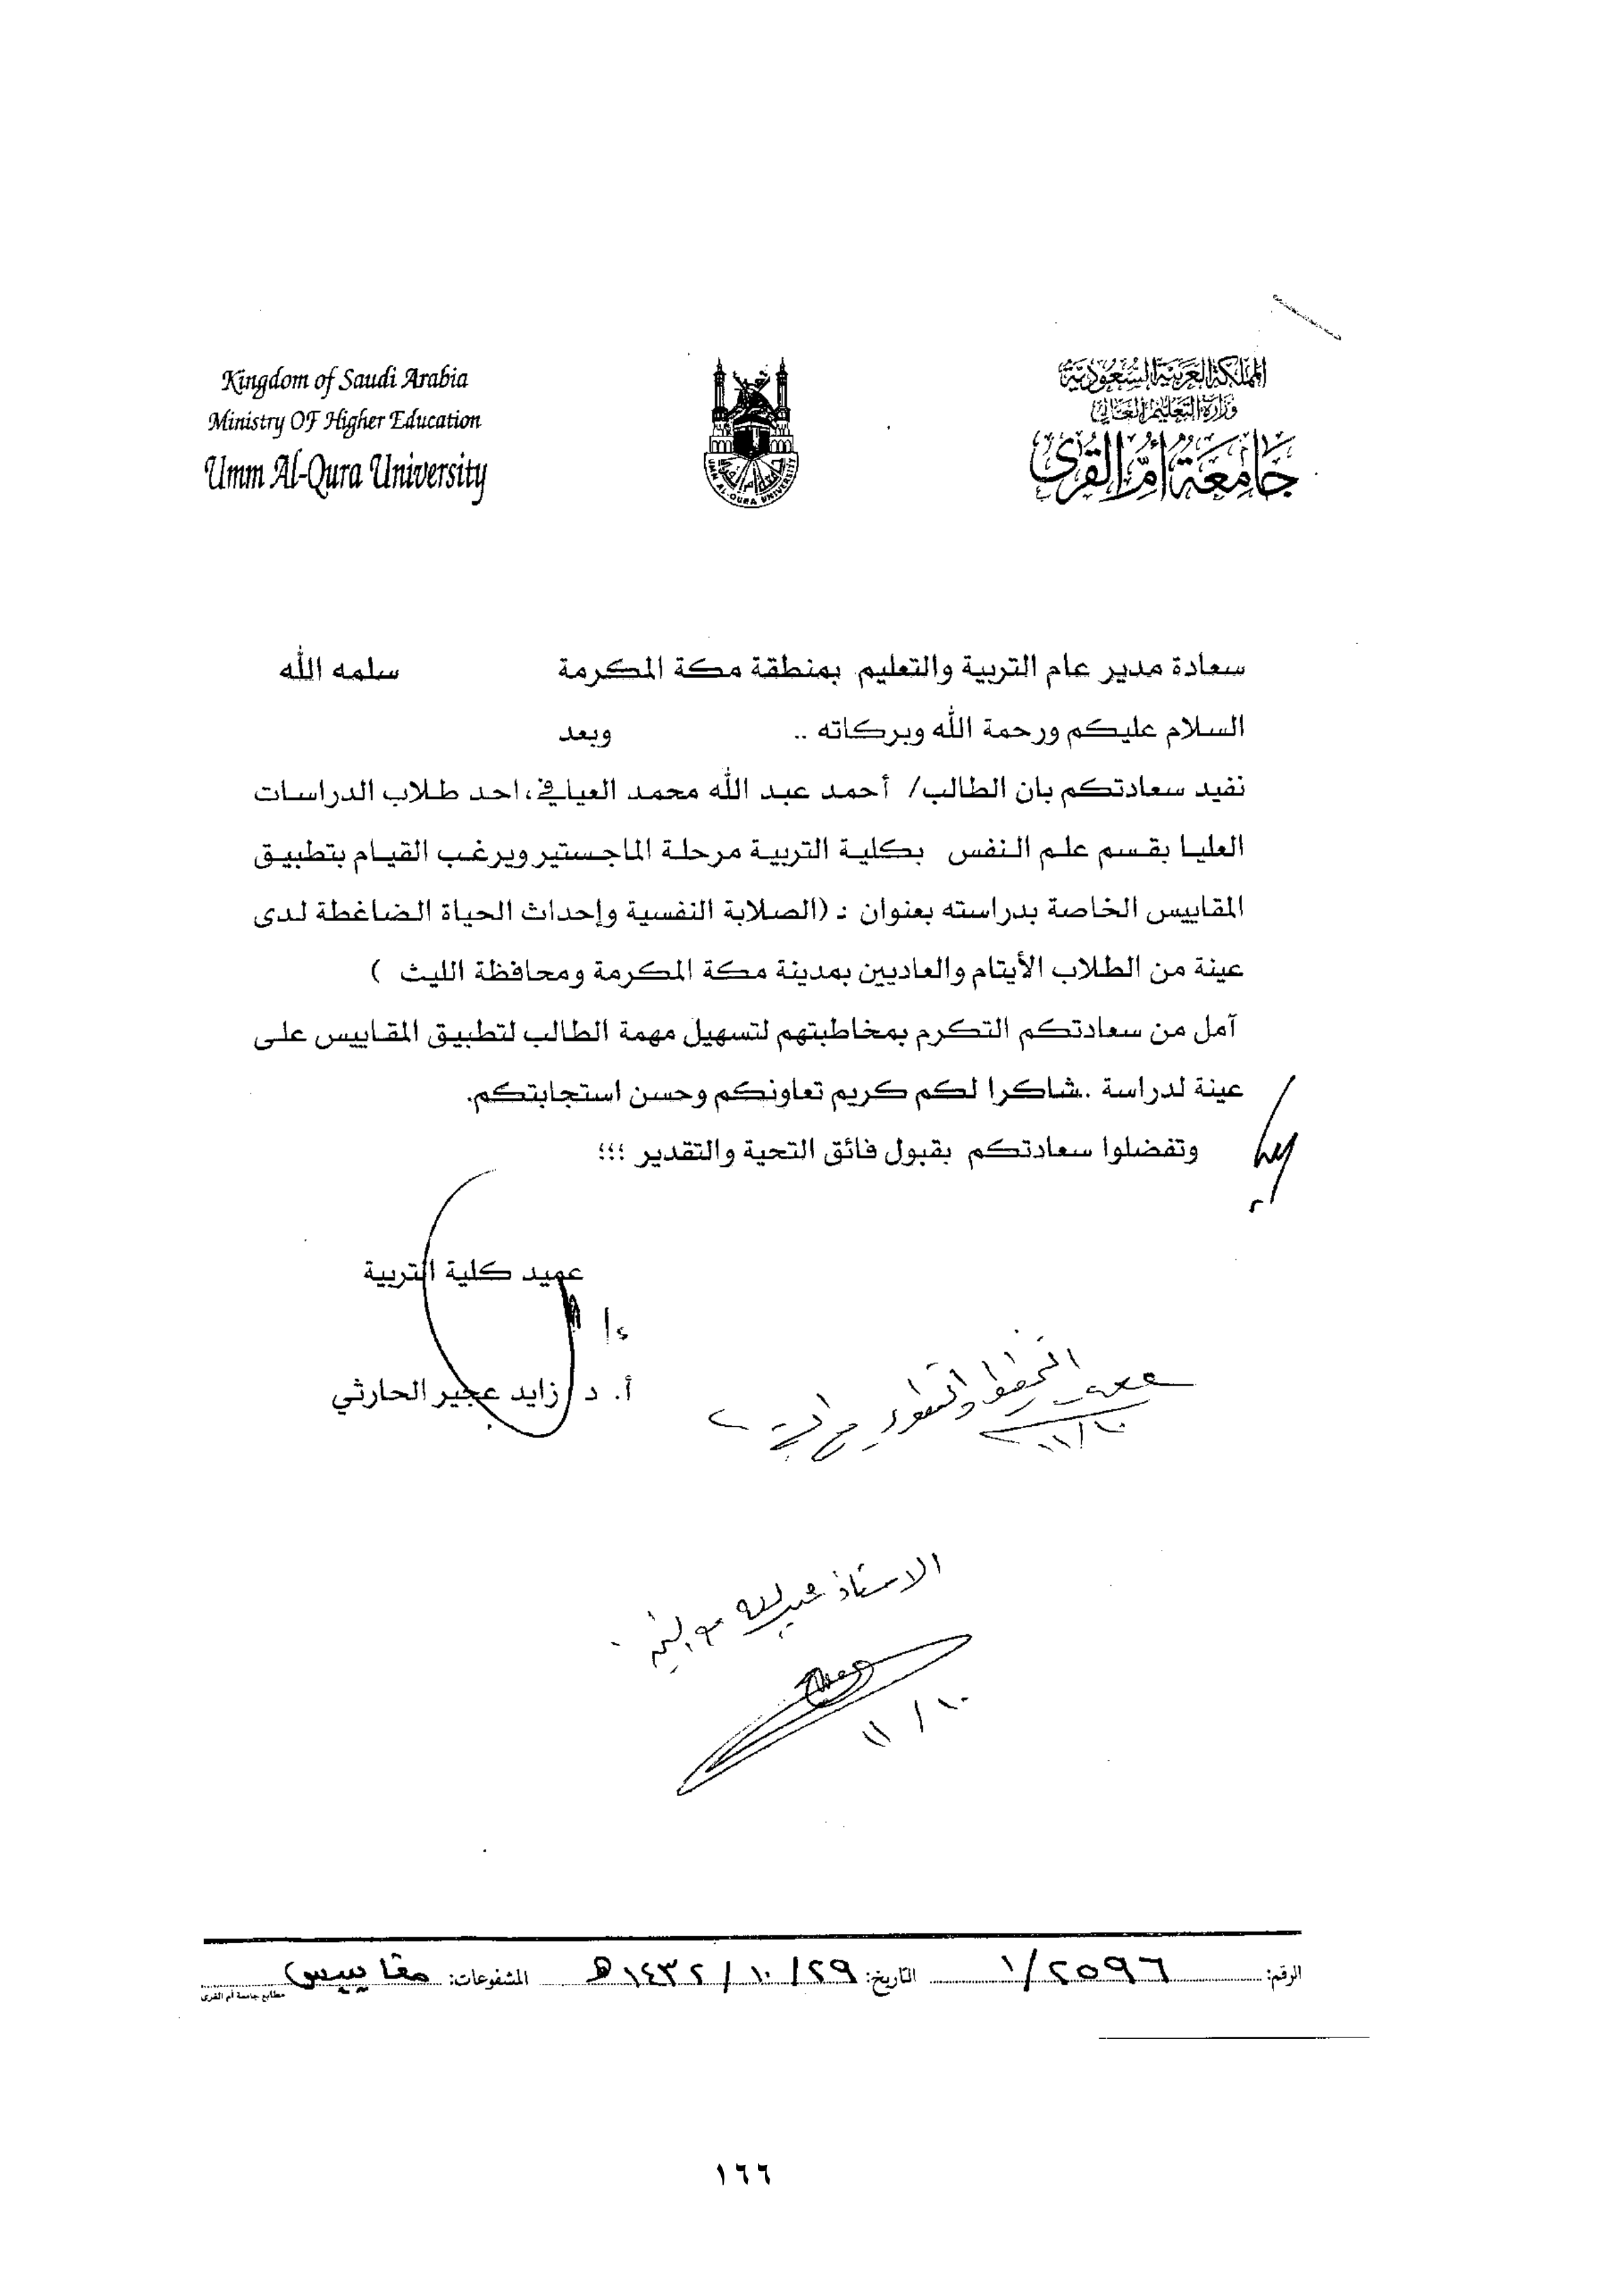 المملكة العربية السعودية
وزارة التعليم العالي
جامعة أم القرى
Kingdom of Saudi Arabia
Ministry OF Higher Education
Umm Al-Qura University
UMM AL-QURA UNIVERSITY
سعادة مدير عام التربية والتعليم بمنطقة مكة المكرمة سلمه الله
السلام عليكم ورحمة الله وبركاته .. وبعد
نفيد سعادتكم بان الطالب/ أحمد عبد الله محمد العيافي، احد طلاب الدراسات
العليا بقسم علم النفس بكلية التربية مرحلة الماجستير ويرغب القيام بتطبيق
المقاييس الخاصة بدراسته بعنوان : (الصلابة النفسية وإحداث الحياة الضاغطة لدى
عينة من الطلاب الأيتام والعاديين بمدينة مكة المكرمة ومحافظة الليث )
آمل من سعادتكم التكرم بمخاطبتهم لتسهيل مهمة الطالب لتطبيق المقاييس على
عينة لدراسة ..شاكرا لكم كريم تعاونكم وحسن استجابتكم.
وتفضلوا سعادتكم بقبول فائق التحية والتقدير ؛؛؛
عميد كلية التربية
أ. د / زايد عجير الحارثي
التخطيط والتطوير
١١/١٠
الاستاذ عبدالله
١١/١٠
الرقم: ١/٢٥٩٦ التاريخ: ٢٩/١٠/١٤٣٢هـ المشفوعات: مقاييس
مطابع جامعة أم القرى
١٦٦